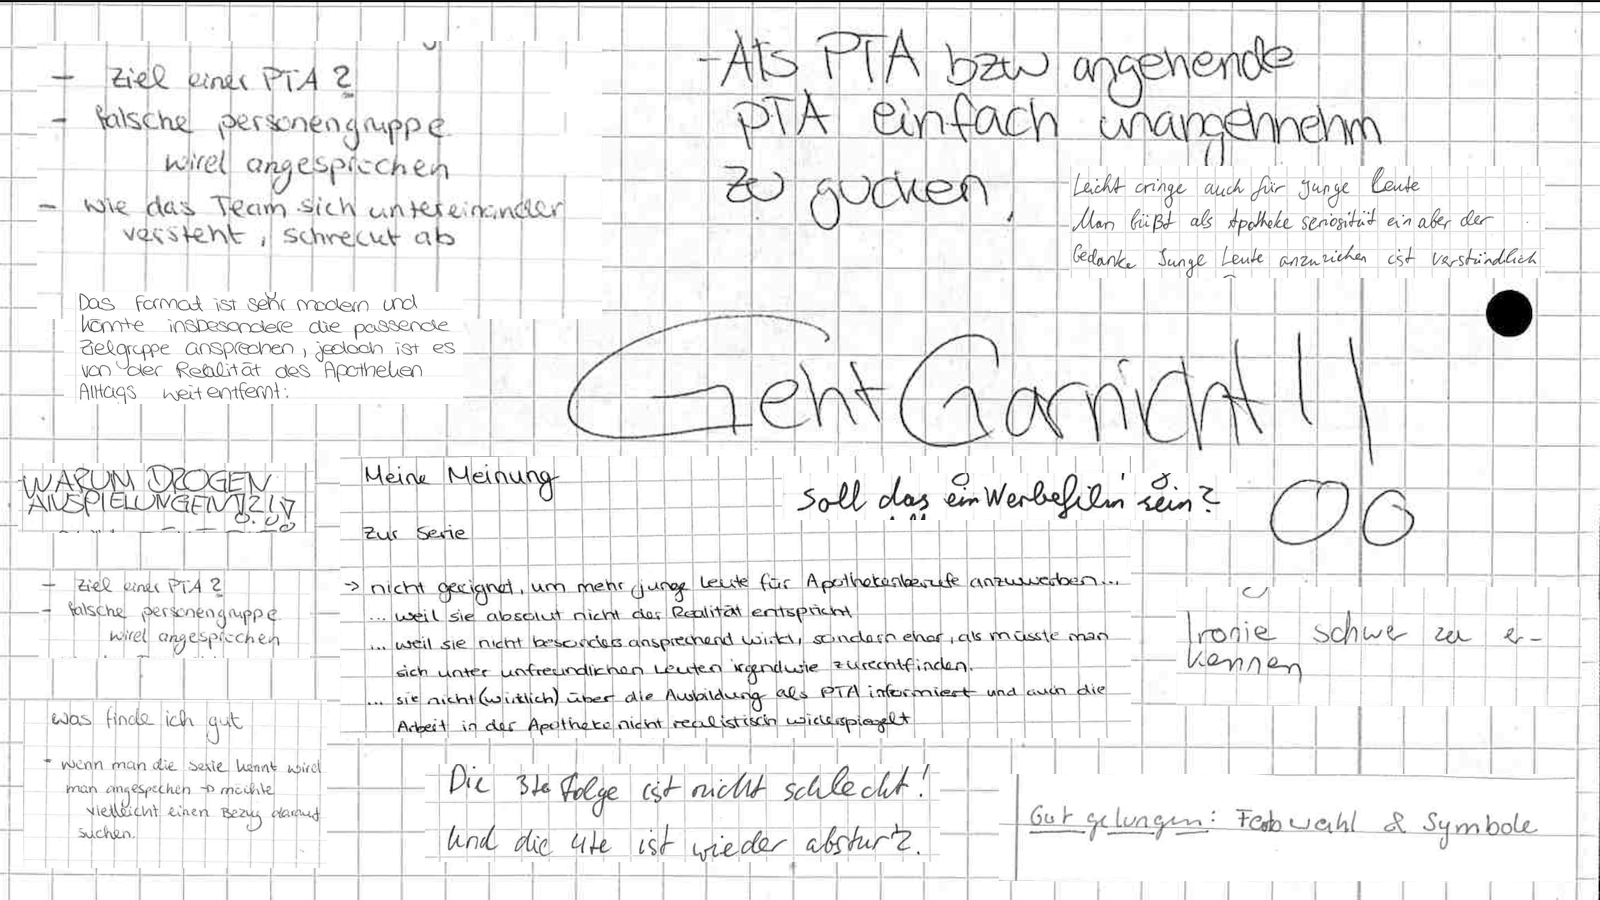 - Ziel einer PTA?
- falsche personengruppe
wird angesprochen
- wie das Team sich untereinander
versteht, schreckt ab
- Als PTA bzw angehende
PTA einfach unangehnehm
zu gucken.
Leicht cringe auch für junge Leute
Man büßt als Apotheke seriosität ein aber der
Gedanke Junge Leute anzuziehen ist verständlich
Das Format ist sehr modern und
könnte insbesondere die passende
Zielgruppe ansprechen, jedoch ist es
von der Realität des Apotheken
Alltags weit entfernt:
Geht Garnicht!!
WARUM DROGEN
ANSPIELUNGEN?!?!?
Meine Meinung
zur Serie
→ nicht geeignet, um mehr junge Leute für Apothekenberufe anzuwerben...
... weil sie absolut nicht der Realität entspricht
... weil sie nicht besonders ansprechend wirkt, sondern eher, als müsste man
sich unter unfreundlichen Leuten irgendwie zurechtfinden.
... sie nicht (wirklich) über die Ausbildung als PTA informiert und auch die
Arbeit in der Apotheke nicht realistisch widerspiegelt
Soll das ein Werbefilm sein?
- Ziel einer PTA?
- falsche personengruppe
wird angesprochen
Ironie schwer zu er-
kennen
was finde ich gut
- wenn man die serie kennt wird
man angesprechen → möchte
vielleicht einen Bezug darauf
suchen.
Die 3te Folge ist nicht schlecht!
Und die 4te ist wieder absturz.
Gut gelungen: Farbwahl & Symbole